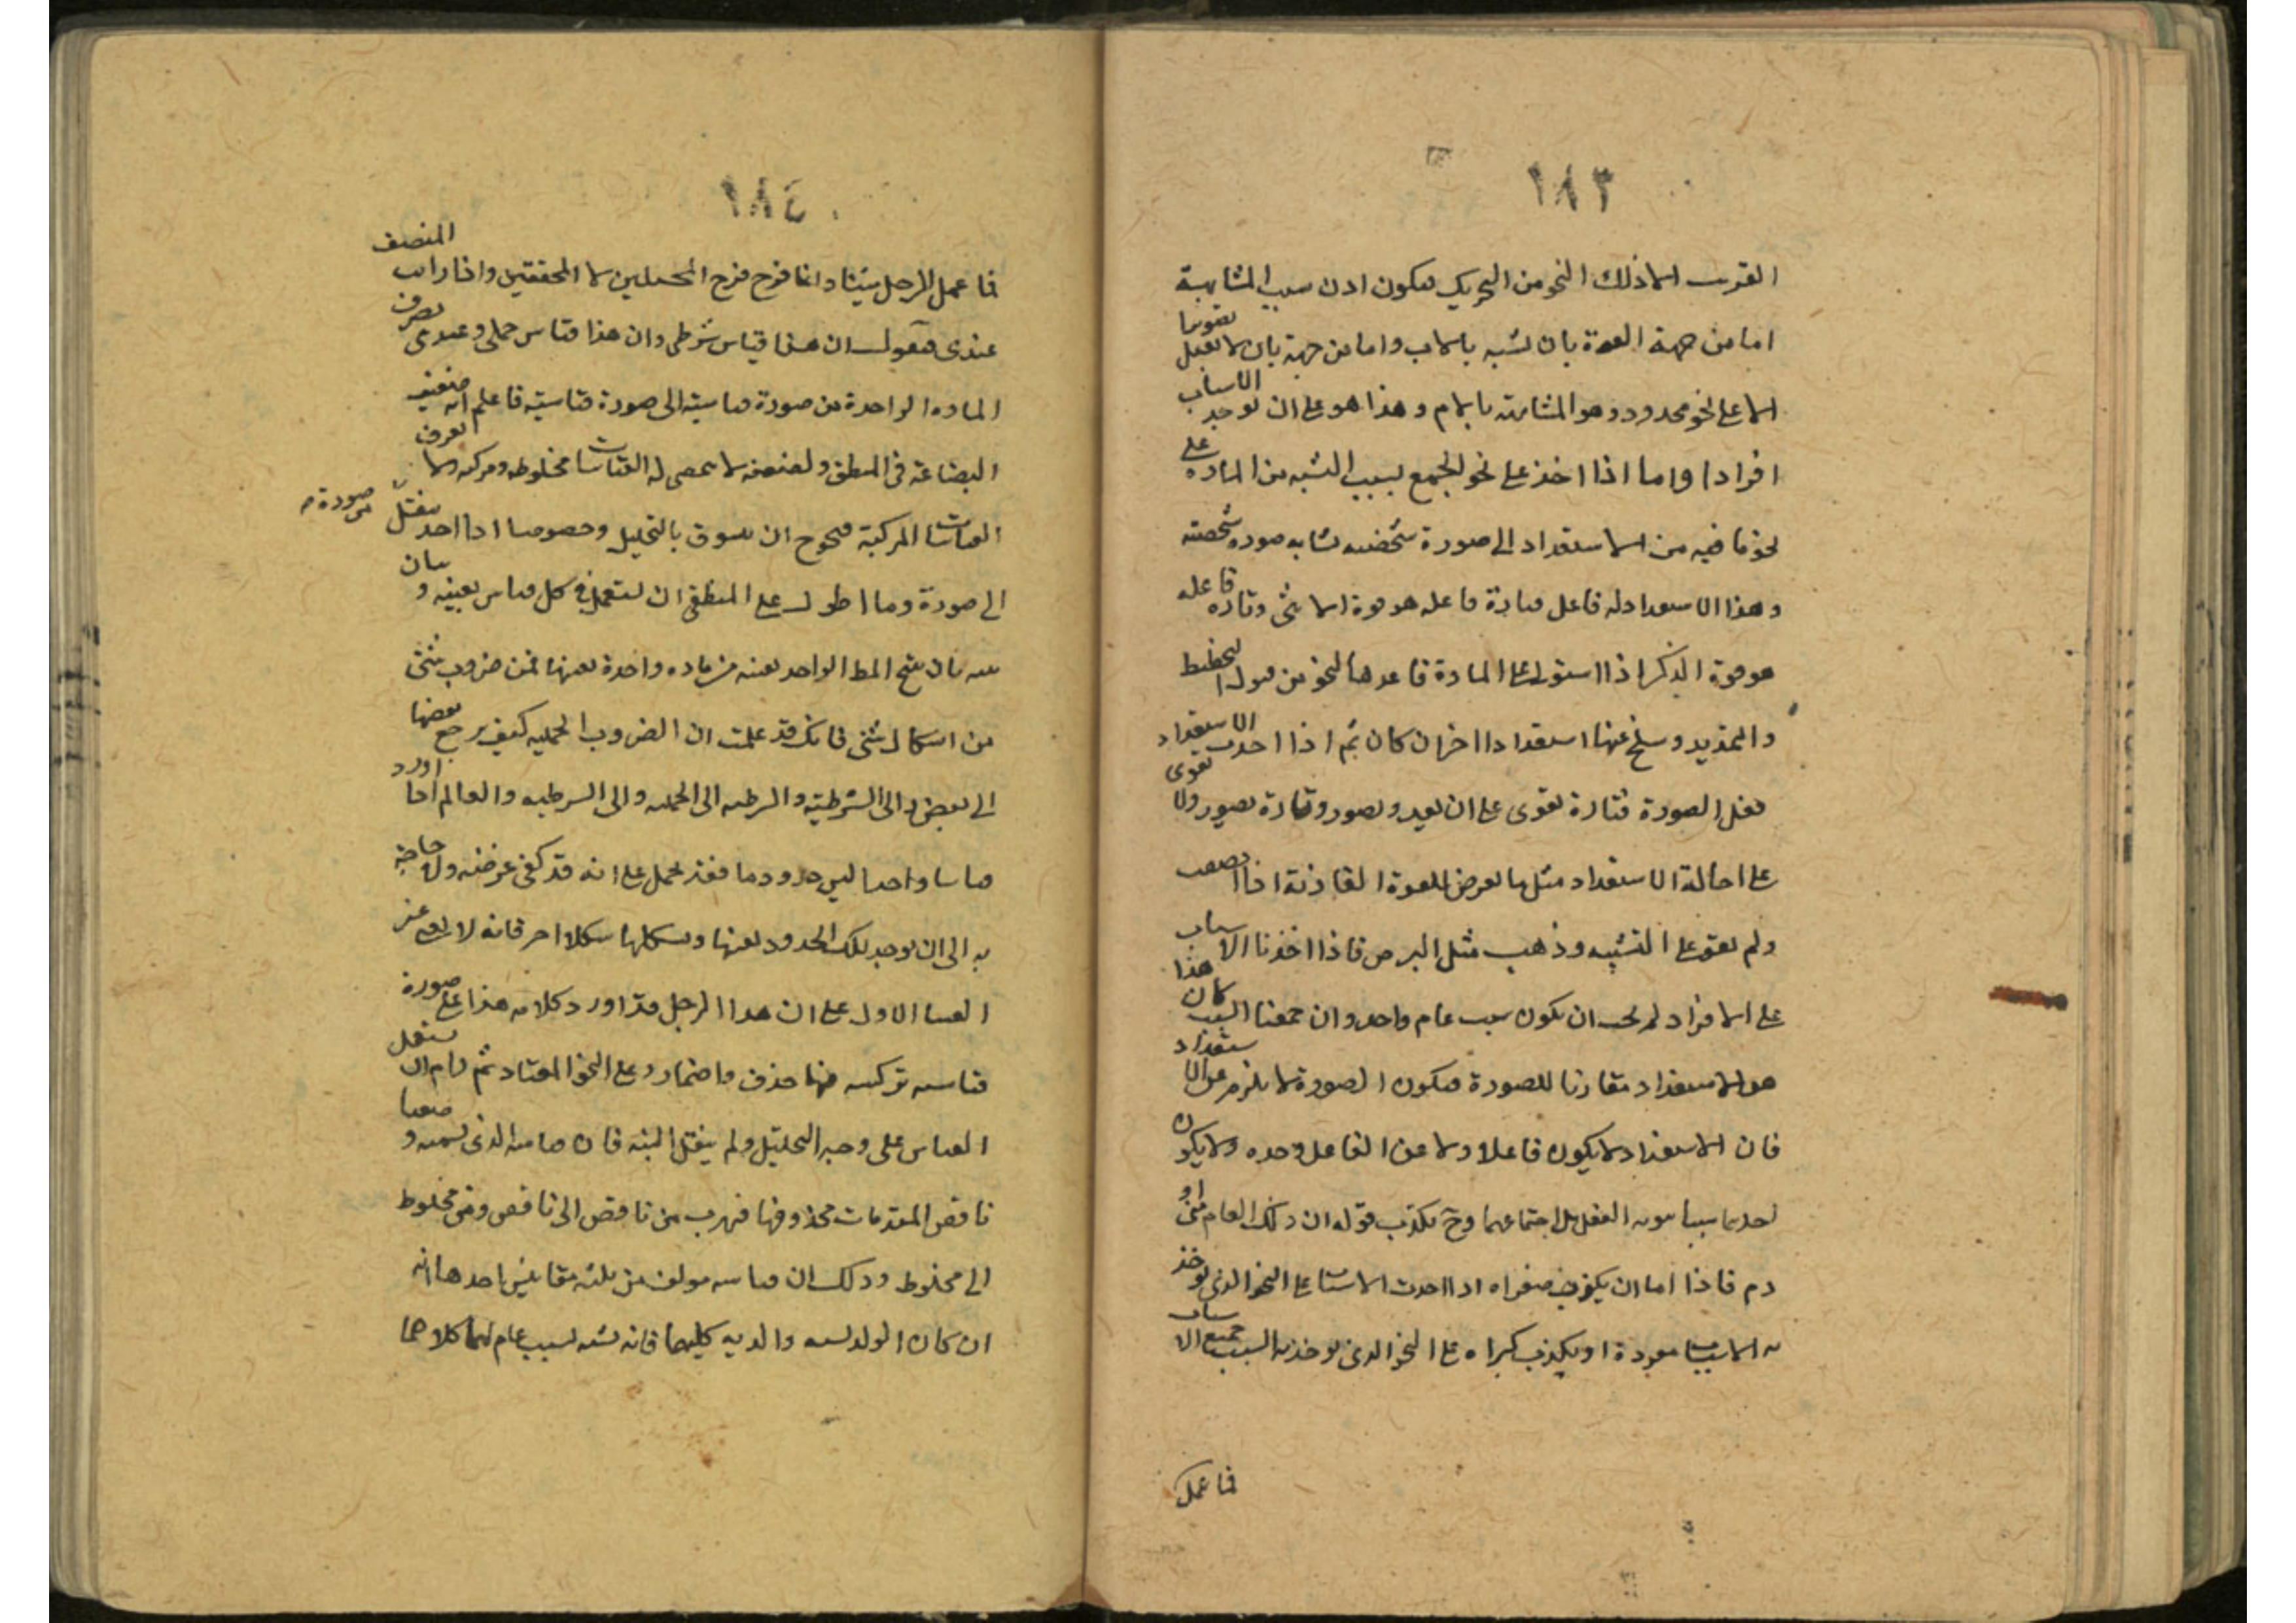 ١٨٣
القرب الا ذلك النحو من التحريك فيكون اذن سبب المشابهة
اما من جهة القوة بان تشبه بالاب واما من جهة بان لا تقبل تصويرا
الا على نحو محدود وهو المشابهة بالام وهذا هو على ان توجد الاسباب
افرادا واما اذا اخذ على نحو الجمع بسبب الشبه من المادة على
نحو ما فيه من الاستعداد الى صورة شخصية تشابه صورة شخصية
وهذا الاستعداد له فاعل فتارة فاعله هو قوة الانثى وتارة فاعله
هو قوة الذكر اذا استولى على المادة فاعدها لنحو من قبول التخطيط
والتمديد وسلخ عنها استعدادا اخر ان كان ثم اذا احدث الاستعداد
تقبل الصورة فتارة تقوى على ان تعيد وتصور وتارة تصور ولا تقوى
على احالة الاستعداد مثل ما تعرض للقوة الغاذية اذا ضعفت
ولم تقو على التشبيه وذهب مثل البرص فاذا اخذنا الاسباب
على الافراد لم يجب ان يكون سبب عام واحد وان جمعنا السبب كان هذا
هو الاستعداد مقارنا للصورة فيكون الصورة لا يلزم عن الاستعداد
فان الاستعداد لا يكون فاعلا ولا عن الفاعل وحده ولا يكون
احدهما سببا موجبه الفعل بل اجتماعهما وح يكذب قوله ان ذلك العام منى او
دم فاذا اما ان يكون صغراه اذا اخذت الاسباب على النحو الذى توخذ
به الاسباب مفردة او يكذب كبراه على النحو الذى توخذ به السبب جميع الاسباب
فما عمل
١٨٤
فما عمل الرجل شيئا وانما فرح فرح المحصلين لا المحققين واذا راىت المنصف
عندى فيقول ان هذا قياس شرطى وان هذا قياس حملى وعندى تصرف
المادة الواحدة من صورة قياسية الى صورة قياسية فاعلم انه ضعيف
البضاعة فى المنطق ولضعفه لا يحصى له القياسات مخلوطه ومركبه ولا تعرف
القياسات المركبة فيحوج ان يسوق بالتحليل وخصوصا اذا اخذ ينقل من صورة
الى صورة وما اطول على المنطقى ان يستعمل فى كل قياس بعينه وبيان
بينه بان ينتج المط الواحد بعينه من مادة واحدة بعينها فمن ضروب شتى
من اشكال شتى فانك قد علمت ان الضروب الحمليه كيف يرجع بعضها
الى بعض والى الشرطيته والشرطيه الى الحمليه والى الشرطيه والعالم اذا اورد
قياسا واحدا ليس حدودها فقد يحمل على انه قد كفى غرضه ولا حاجة
به الى ان يوجد تلك الحدود بعينها ويشكلها شكلا اخر فانه لا يغنى عن
القياس الاول على ان هذا الرجل قد اورد كلامه هذا على صورة
قياسيه تركيبيه فيها حذف واضمار وعلى النحو المعتاد ثم رام ان ينقل
القياس على وجه التحليل ولم ينقل البته فان قياسه الذى قسمه وضعا
ناقص المقدمات محذوفها فهرب من ناقص الى ناقص ومن مخلوط
الى مخلوط وذلك ان قياسه مولف من ثلثه مقاييس احدها انه
ان كان الولد يشبه والديه كليهما فانه يشبه بسبب عام لهما كلاهما